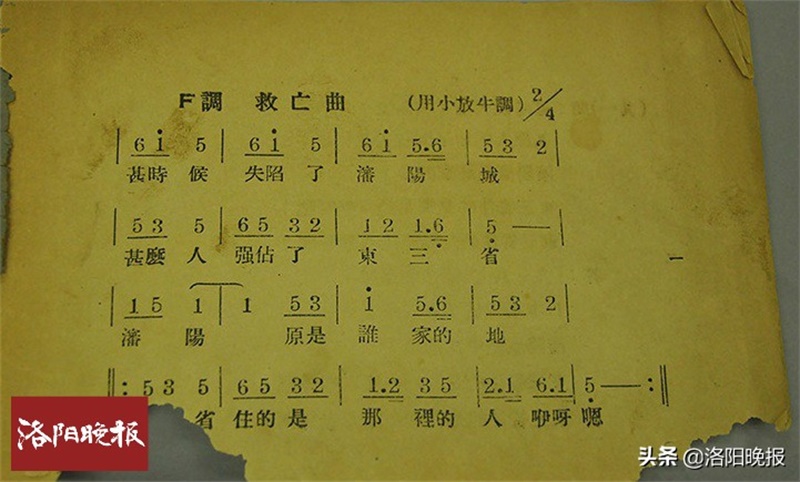 F調 救亡曲 (用小放牛調) 2/4
| 6 i 5 | 6 i 5 | 6 i 5.6 | 5 3 2 |
甚時候 失陷了 瀋陽 城
| 5 3 5 | 6 5 3 2 | 1 2 1.6 | 5 — |
甚麼人 强佔了 東三 省
| 1 5 1 | 1 5 3 | i 5.6 | 5 3 2 |
瀋陽 原是 誰 家的 地
‖: 5 3 5 | 6 5 3 2 | 1.2 3 5 | 2.1 6.1 | 5 — :‖
省 住的是 那裡的人 咿呀嗯
洛阳晚报
头条 @洛阳晚报